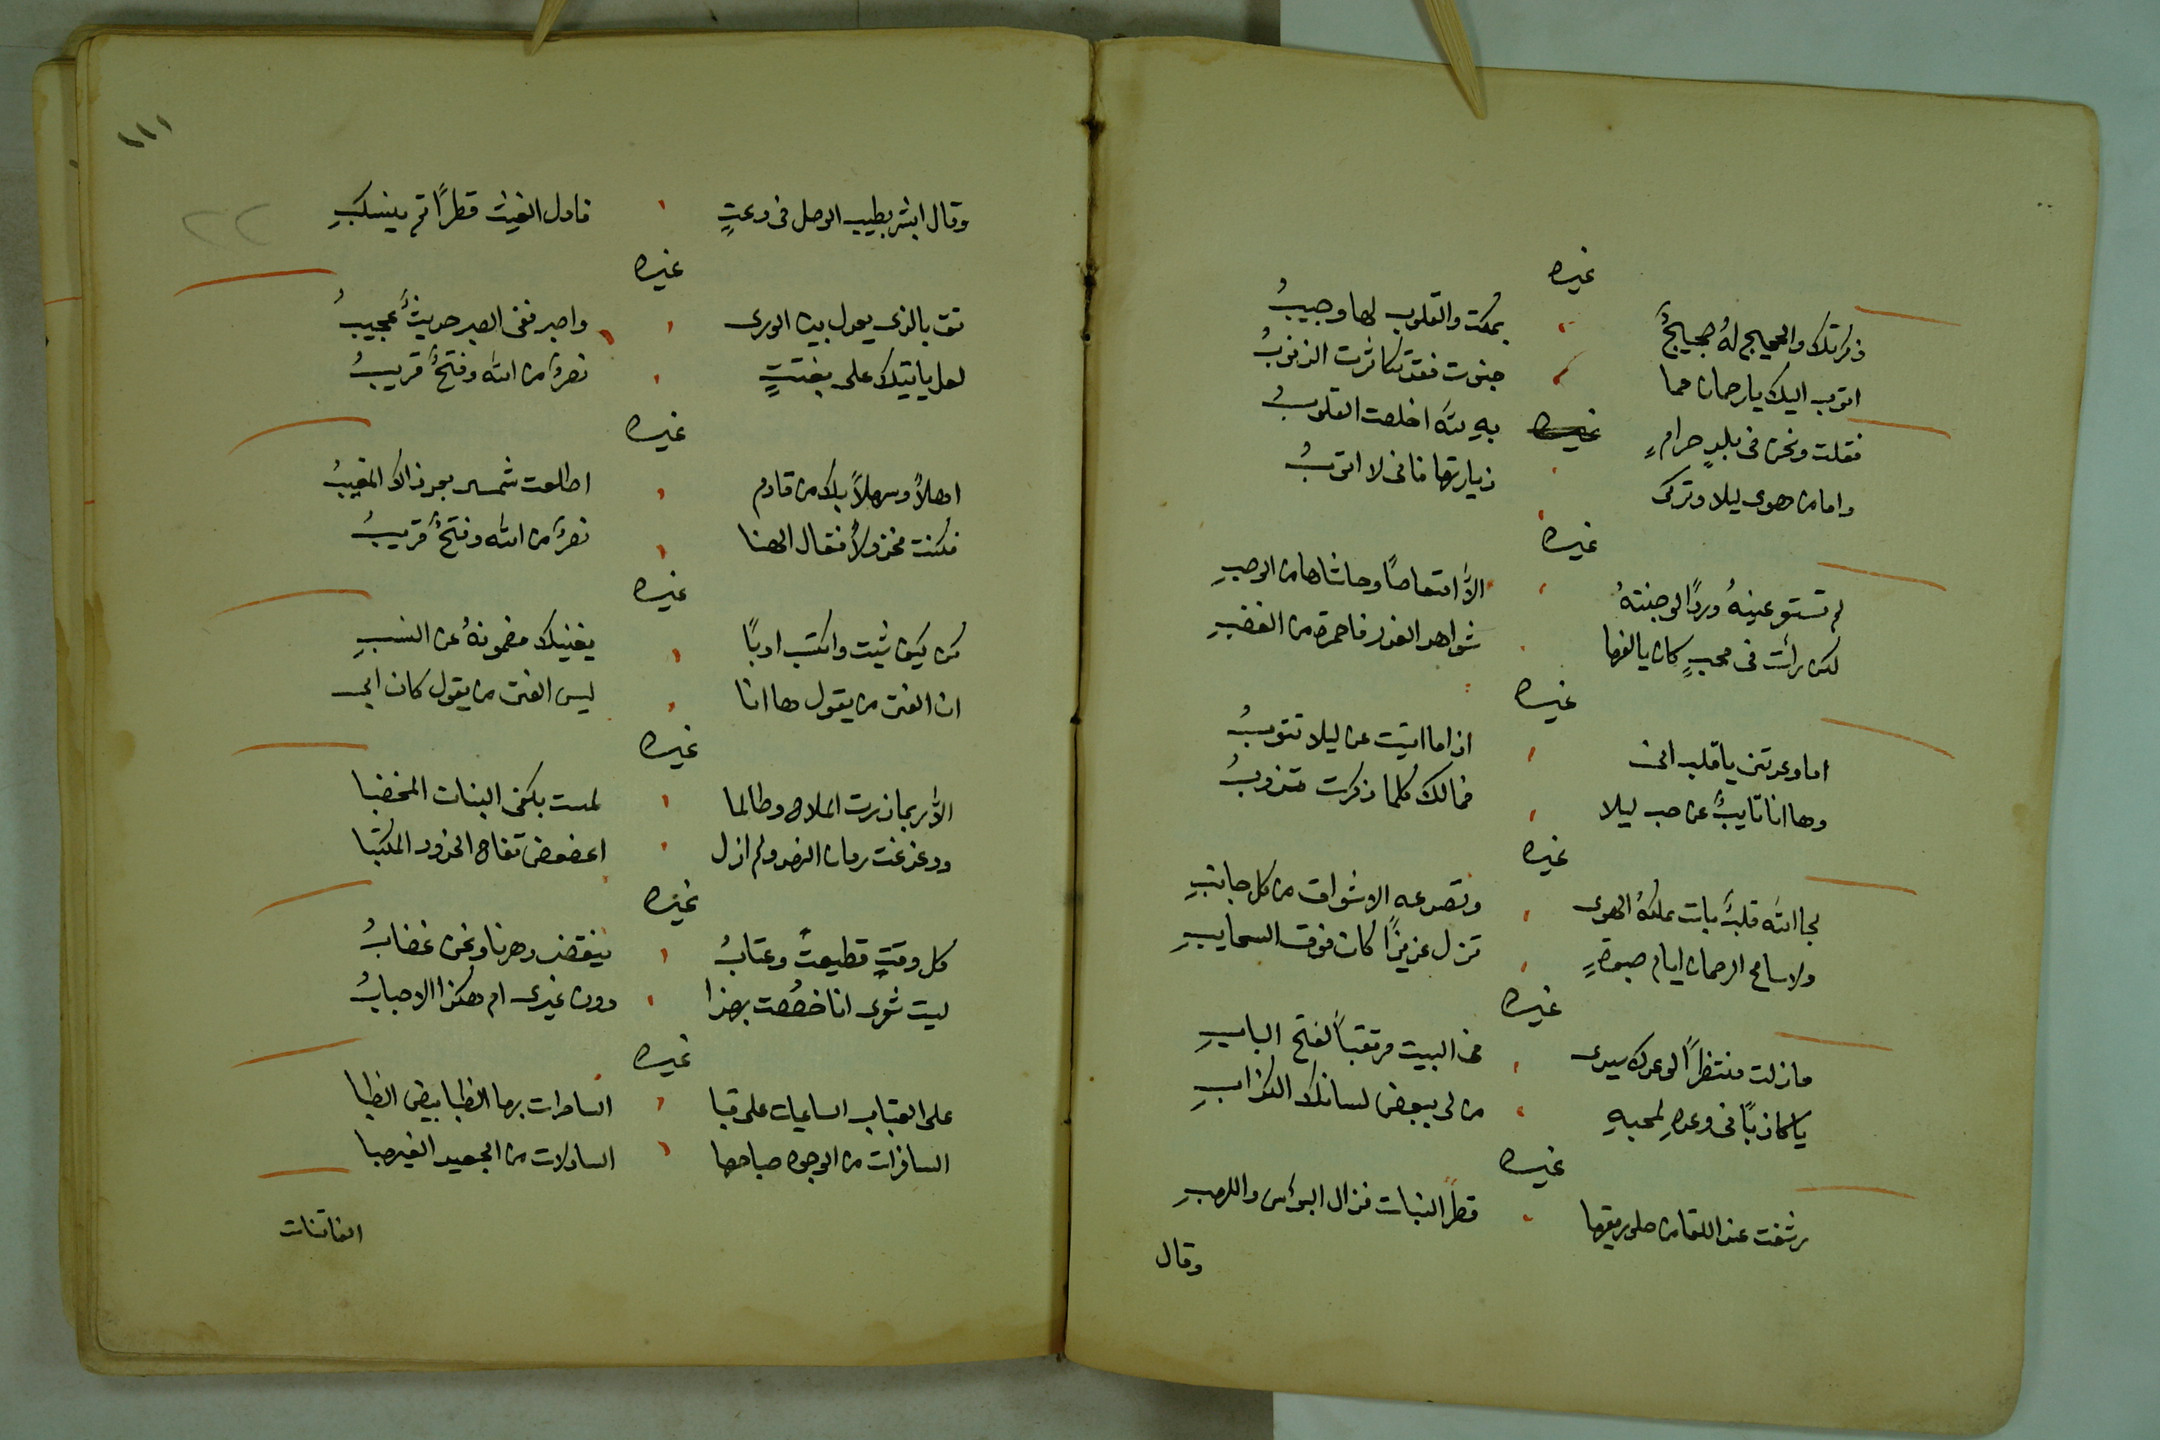 غيره
ذكرتك والحجيج لهُ ضجيجٌ بمكت والقلوب لها وجيبُ
اتوب اليك يا رحمان مما جنوت فقد تكاثرت الذنوبُ
فقلت ونحن فى بلدٍ حرامٍ به لله اخلصت القلوبُ
واما من هوى ليلا وتركى زيارتها فانى لا اتوبُ
غيره
لم تستو عينهُ وردًا لوجنتهُ الاّ امتعاصًا وحاشاها من الوصبِ
لكن رأت فى محبٍ كان يالفها شواهد الغدر فاحمرة من الغضبِ
غيره
اما وعدتنى يا قلب انى اذا ما اتيت عن ليلا تتوبُ
وها انا تايبٌ عن حب ليلا فمالك كلما ذكرت تذوبُ
غيره
لحا الله قلبٌ بات يملكهُ الهوى وتصدعه الاشواق من كل جانبِ
ولا سامح الرحمان ايام صبوةٍ تزل عزيزًا كان فوق السحايبِ
غيره
ما زلت منتظراً لوعدك سيدى فى البيت مرتقباً لفتح البابِ
يا كاذبًا فى وعدهِ لمحبهِ من لى ببعض لسانك الكذابِ
غيره
رشفت عند اللقا من حلو ريقها قطرُ النبات فزال البؤس واللهبِ
وقال
١١١
٢٢
وقال ابشر بطيب الوصل فى دعتٍ فاول الغيث قطرًا ثم ينسكبِ
غيره
تق بالذى يحول بين الورى واصبر ففى الصبر حديثٌ عجيبُ
لعل ياتيك على بغتتٍ نصرٌ من الله وفتحٌ قريبُ
غيره
اهلاً وسهلاً بك من قادم اطلعت شمس بعد ذاك المغيبُ
فكنت مخذولاً فقال الهنا نصرٌ من الله وفتحٌ قريبُ
غيره
كن كيف شيت واكتسب ادبًا يغنيك مضمونهُ عن النسبِ
ان الفتى من يقول ها انا ليس الفتى من يقول كان ابى
غيره
الاّ ربما زرت الملاح وطالما لمست بكفى البنات المخضبا
ودغدغت رمان النهد ولم ازل اعضعض تفاح الخدود المكتبا
غيره
كل وقتٍ قطيعتٌ وعتابُ ينقضى دهرنا ونحن غضابُ
ليت شعرى انا خصُصت بهذا دون غيرى ام هكذا الاحبابُ
غيره
على القباب الساميات على قبا السامرات بها الظبا بيض الظبا
السافرات من الوجوه صباحها السادلات من الجعيد الغيهبا
الفاتنات